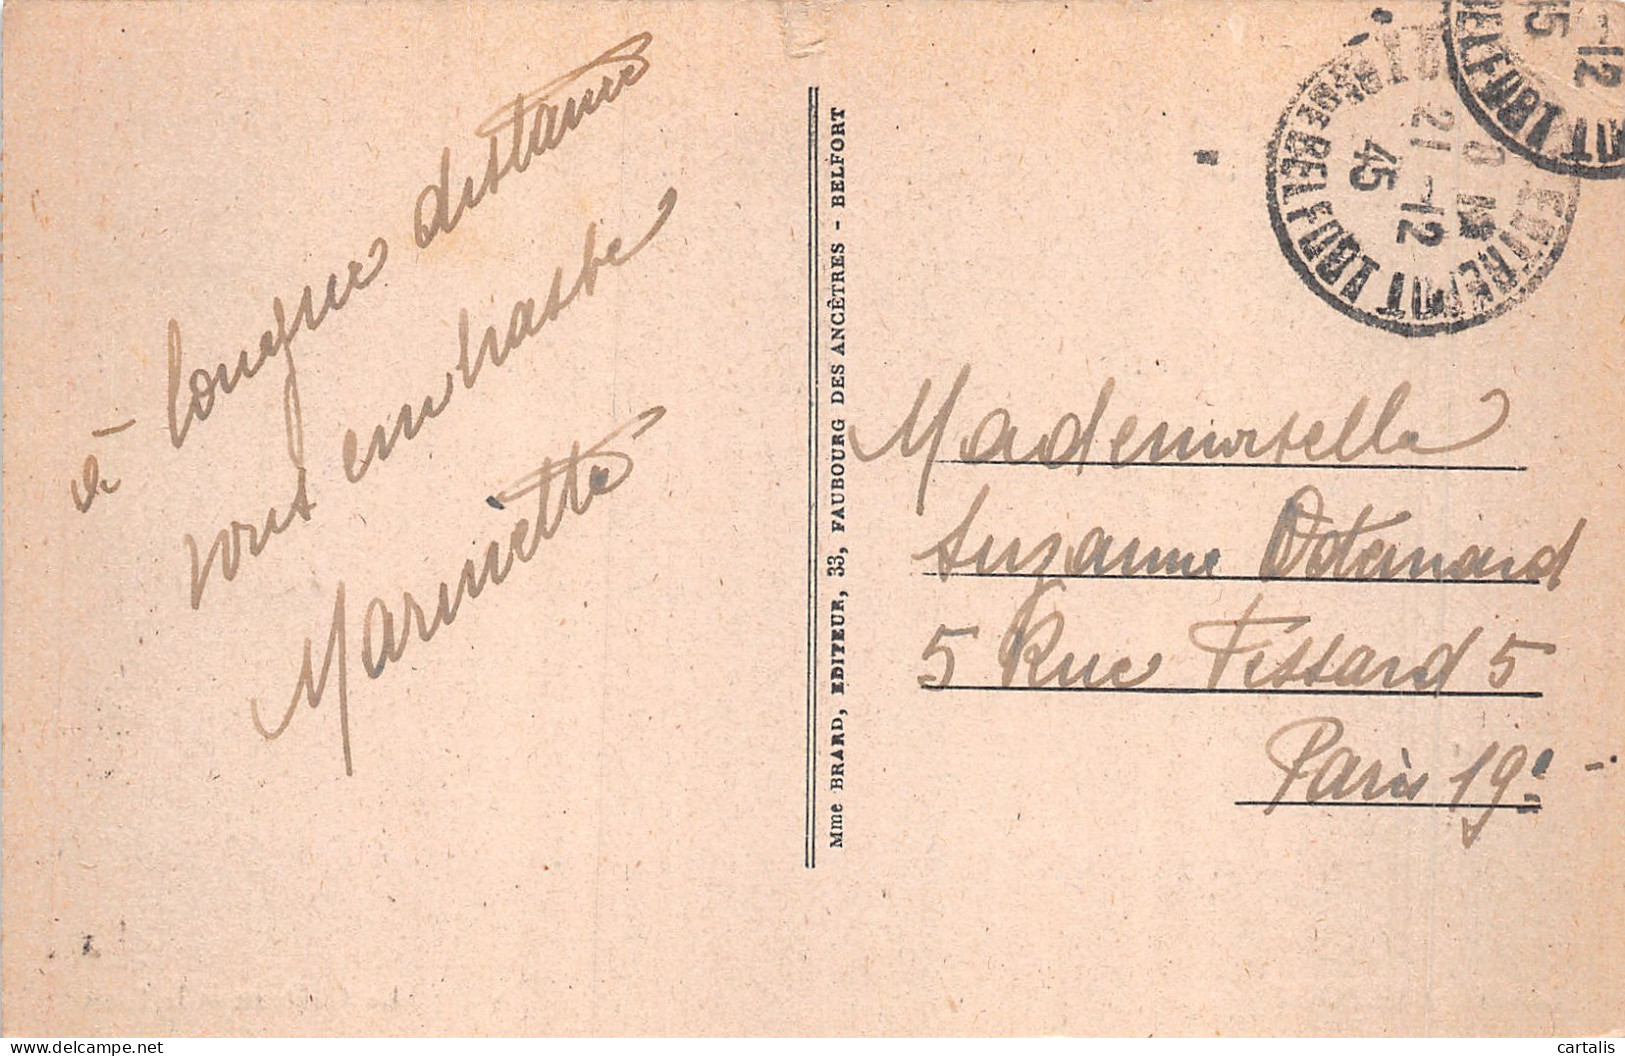 à longue distance
vous embrasse
Marinette
Mme BRARD, EDITEUR, 33, FAUBOURG DES ANCÊTRES - BELFORT
21 -12
45
BELFORT
-12
45
BELFORT
Mademoiselle
Suzanne
5 Rue Fessard 5
Paris 19e
cartalis
delcampe.net